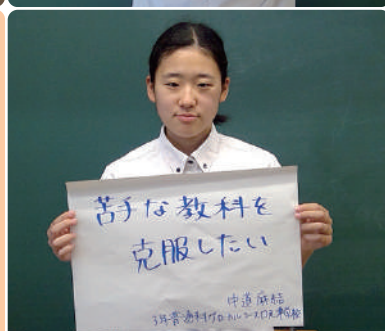 苦手な教科を
克服したい
中道麻結
3年普通科グローカルコース